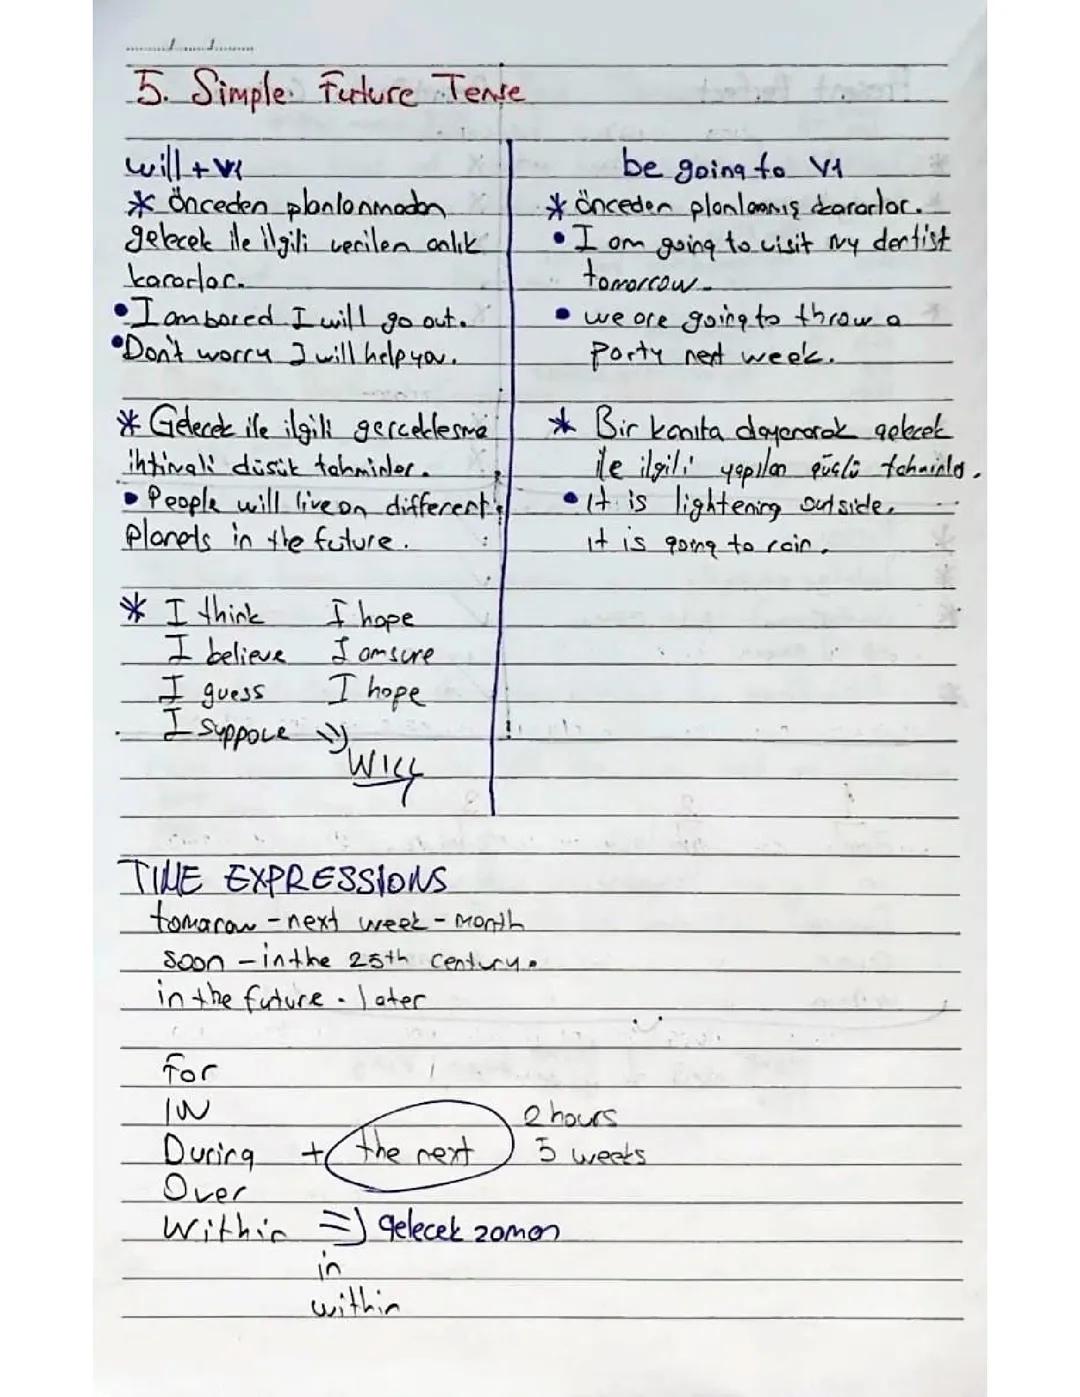 5. Simple Future Tense
will + V1
* Önceden planlanmadan
gelecek ile ilgili verilen anlık
kararlar.
• I am bored I will go out.
• Don't worry I will help you.
* Gelecek ile ilgili gerçekleşme
ihtimali düşük tahminler.
• People will live on different
Planets in the future.
* I think I hope
I believe I am sure
I guess I hope
I suppose =>
WILL
be going to V1
* Önceden planlanmış kararlar.
• I am going to visit my dentist
tomorrow.
• we are going to throw a
Party next week.
* Bir kanıta dayanarak gelecek
ile ilgili yapılan güçlü tahminler.
• it is lightening outside.
it is going to rain.
TIME EXPRESSIONS
tomarow - next week - Month
soon - in the 25th century.
in the future - later
For
IN
During + the next
Over
Within => gelecek zaman
2 hours
5 weeks
in
within